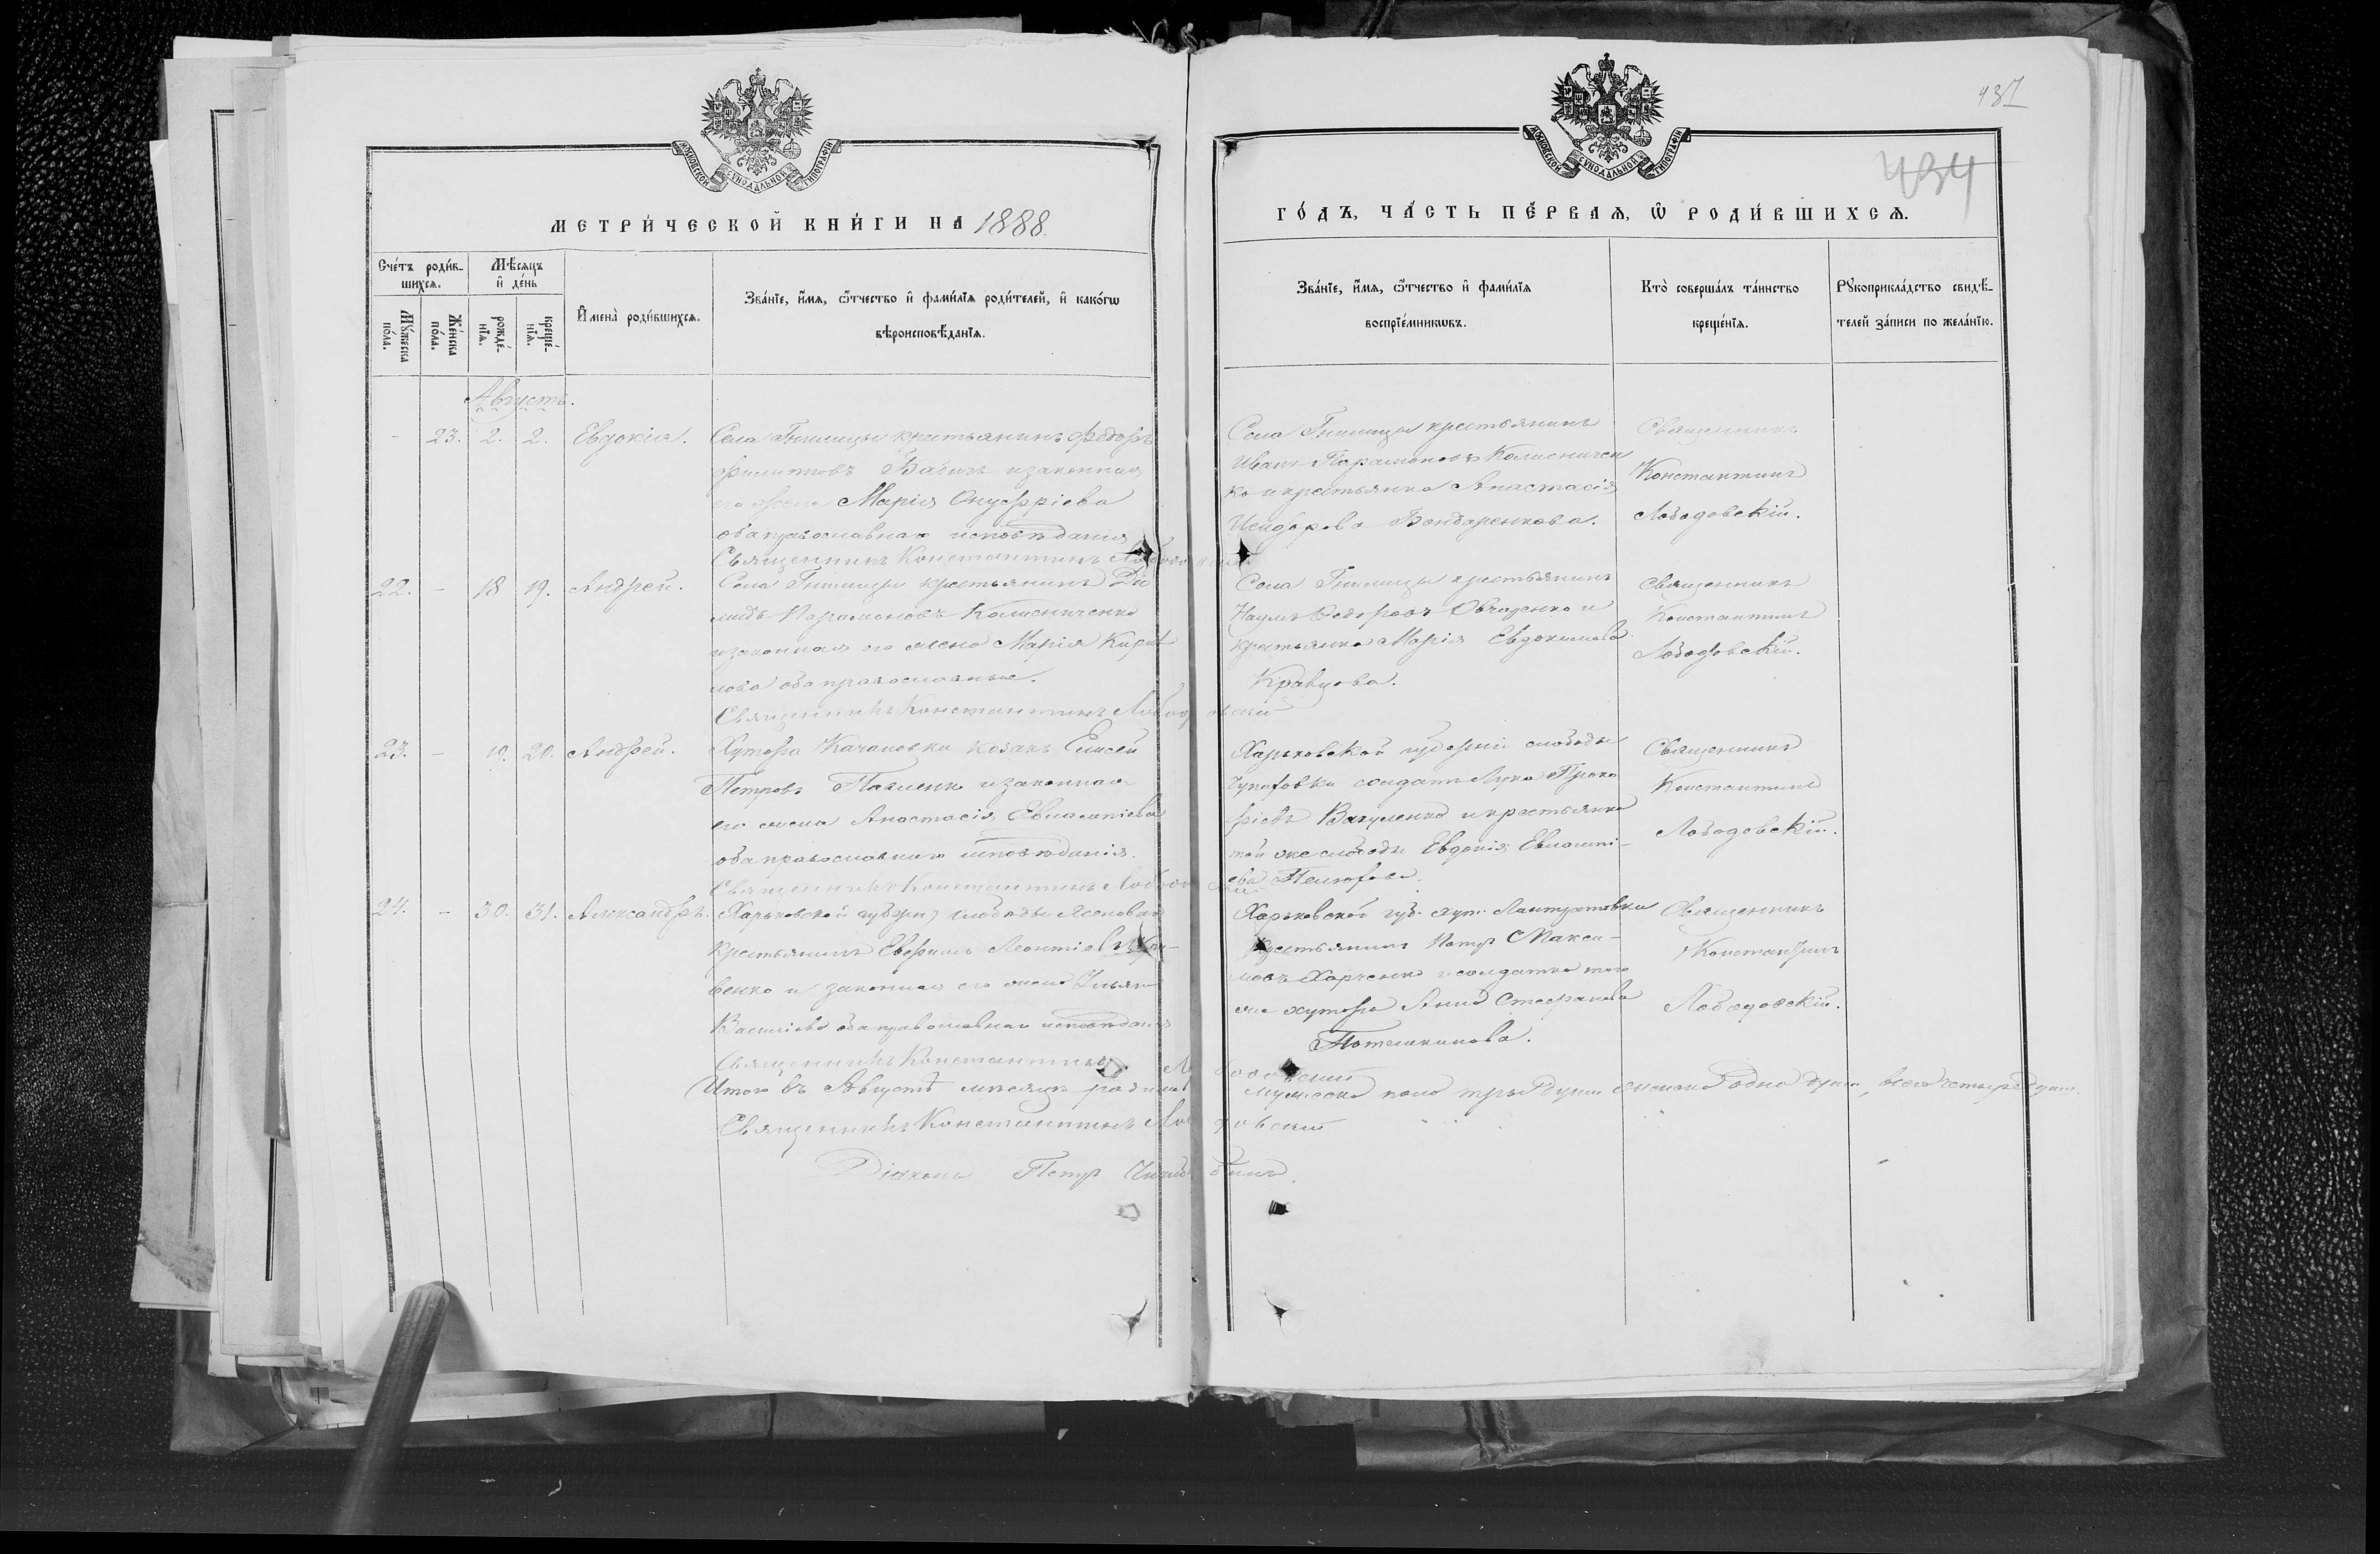 МОСКОВСКОЙ СѴНОДАЛЬНОЙ ТИПОГРАФІИ
МЕТРИ́ЧЕСКОЙ КНИ́ГИ НА 1888
Сче́тъ роди́в-
шихсѧ.
Мѣ́сѧцъ
и҆ де́нь
Мꙋ́жеска
по́ла.
Же́нска
по́ла.
рожде́-
нїѧ.
креще́-
нїѧ.
И҆мена̀ роди́вшихсѧ.
Зва́нїе, и҆́мѧ, ѻ҆́тчество и҆ фами́лїѧ роди́телей, и҆ како́гѡ
вѣроисповѣ́данїѧ.
Августъ.
- 23. 2. 2. Евдокія.
Села Гнилицы крестьянинъ Федоръ
Филиповъ и законная
его жена Марія Онуфріева
оба православнаго исповѣданія
Священникъ Константинъ Лободовскій
22. - 18 19. Андрей.
Села Гнилицы крестьянинъ Діо
мидъ Парамоновъ Колисниченко
и законная его жена Марія Кирил
лова оба православные.
Священникъ Константинъ Лободовскій
23. - 19. 20. Андрей.
Хутора Качановки козакъ Елисей
Петровъ Павленко и законная
его жена Анастасія Евлампіева
оба православнаго исповѣданія.
Священникъ Константинъ Лободовскій
24. - 30. 31. Александръ.
Харьковской губерніи слободы
крестьянинъ Леонтіевъ
венко и законная его жена
Василіева оба православнаго исповѣданія
Священникъ Константинъ Лободовскій
Итого въ Августѣ мѣсяцѣ родилось мужеска пола три души женска одна душа, всего четыре души.
Священникъ Константинъ Лободовскій
Діаконъ Петръ
431
434
МОСКОВСКОЙ СѴНОДАЛЬНОЙ ТИПОГРАФІИ
ГО́ДЪ, ЧА́СТЬ ПЕ́РВАѦ, Ѡ҆ РОДИ́ВШИХСѦ.
Зва́нїе, и҆́мѧ, ѻ҆́тчество и҆ фами́лїѧ
воспрїе́мникѡвъ.
Кто̀ соверша́лъ та́инство
креще́нїѧ.
Рꙋкоприкла́дство свидѣ́-
телей за́писи по жела́нїю.
Села Гнилицы крестьянинъ
Иванъ Парамоновъ Колисничен
ко и крестьянка Анастасія
Исидорова Бондаренкова.
Священникъ
Константинъ
Лободовскій.
Села Гнилицы крестьянинъ
Наумъ Федоровъ Овчаренко и
крестьянка Марія Евдокимова
Кравцова.
Священникъ
Константинъ
Лободовскій.
Харьковской губерніи слободы
солдатъ Лука Проко
фіевъ Вакуленко и крестьянка
той же слободы Евдокія Евлампі-
ева
Священникъ
Константинъ
Лободовскій.
Харьковской губ. хут.
крестьянинъ Петръ Макси-
мовъ Харченко и солдатка того
же хутора Анна Стефанова
Потемкинова.
Священникъ
Константинъ
Лободовскій.